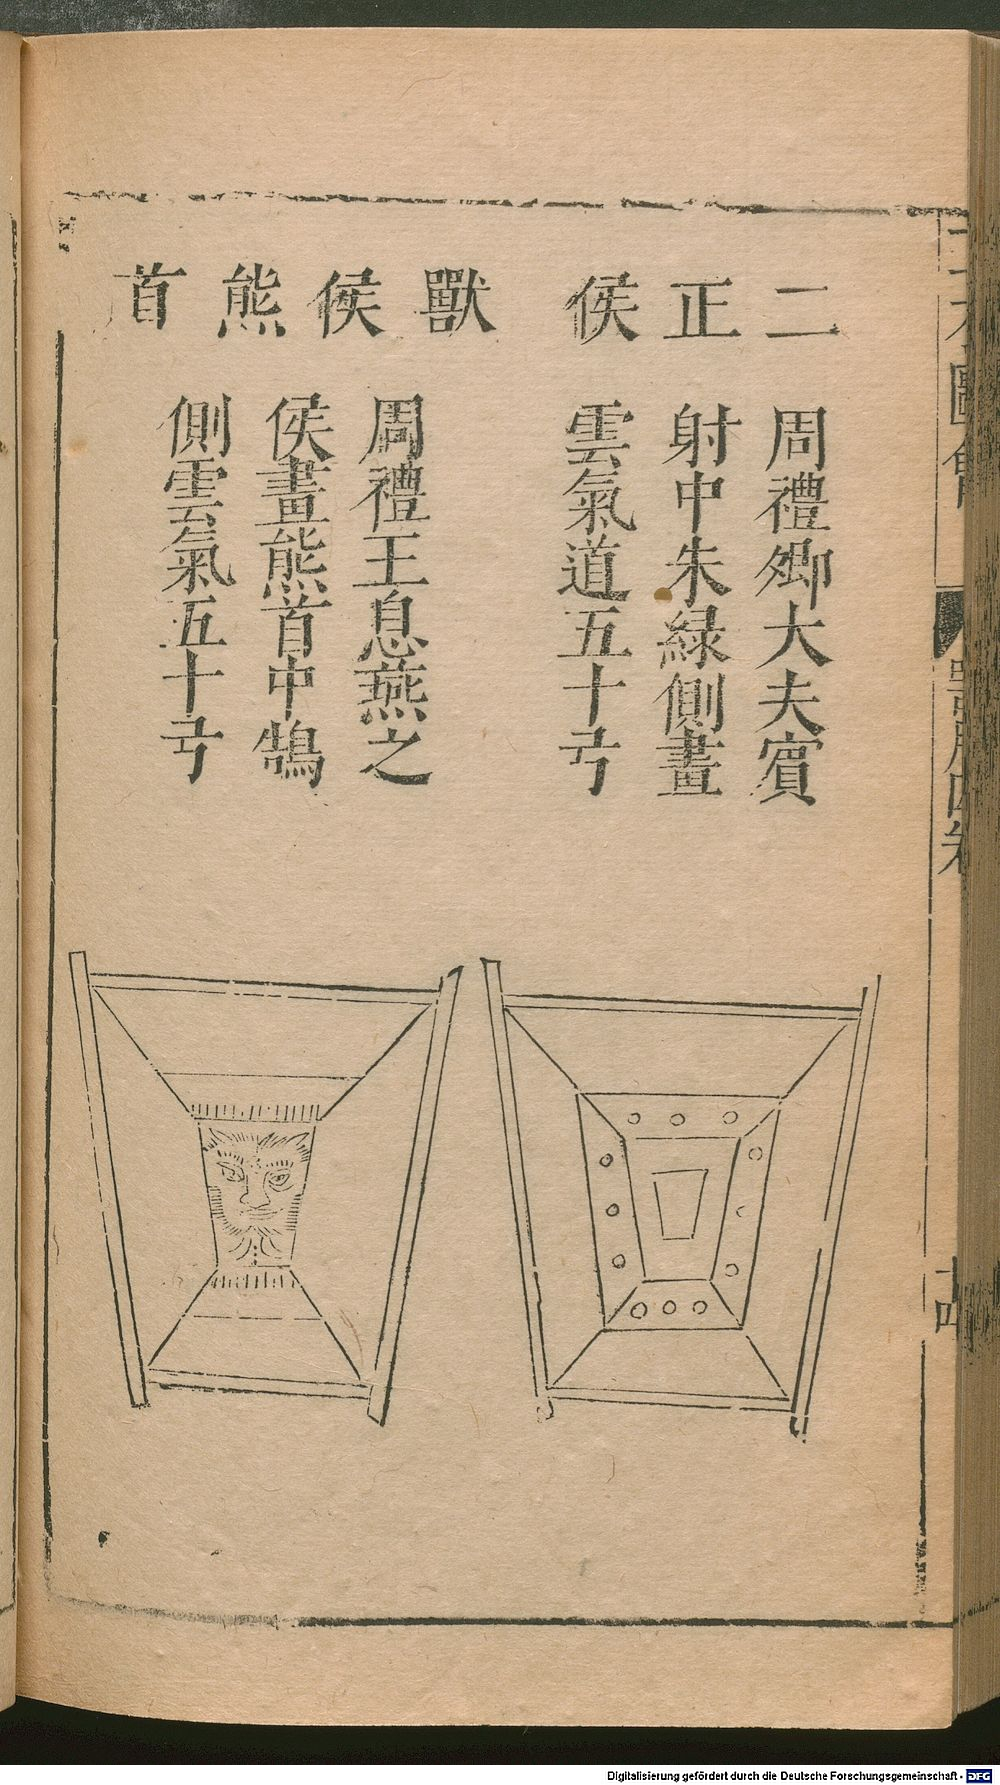 二正侯
周禮鄉大夫賓
射中朱綠側畫
雲氣道五十弓
獸侯熊首
周禮王息燕之
侯畫熊首中鵠
側雲氣五十弓
Digitalisierung gefördert durch die Deutsche Forschungsgemeinschaft - DFG